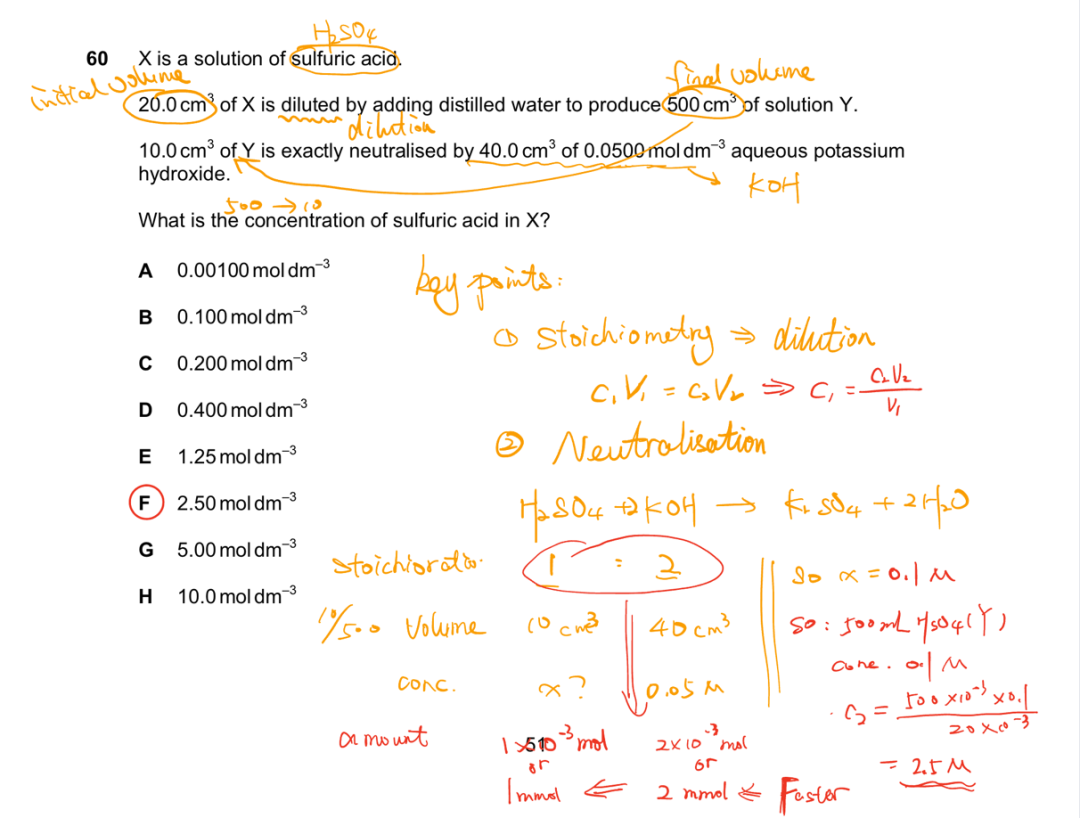 H₂SO₄
60 X is a solution of sulfuric acid.
initial volume
final volume
20.0 cm³ of X is diluted by adding distilled water to produce 500 cm³ of solution Y.
dilution
10.0 cm³ of Y is exactly neutralised by 40.0 cm³ of 0.0500 mol dm⁻³ aqueous potassium
hydroxide.
KOH
500 → 10
What is the concentration of sulfuric acid in X?
A 0.00100 mol dm⁻³
B 0.100 mol dm⁻³
C 0.200 mol dm⁻³
D 0.400 mol dm⁻³
E 1.25 mol dm⁻³
F 2.50 mol dm⁻³
G 5.00 mol dm⁻³
H 10.0 mol dm⁻³
key points:
① Stoichiometry ⇒ dilution
C₁V₁ = C₂V₂ ⇒ C₁ = C₂V₂ / V₁
② Neutralisation
H₂SO₄ + 2KOH → K₂SO₄ + 2H₂O
1 : 2
10/500 Volume 10 cm³ 40 cm³
conc. x? 0.05 M
amount 1 × 10⁻³ mol 2 × 10⁻³ mol
or or
1 mmol ⇐ 2 mmol ⇐ Faster
So x = 0.1 M
So: 500 mL H₂SO₄ (Y)
conc. 0.1 M
C₂ = 500 × 10⁻³ × 0.1 / 20 × 10⁻³
= 2.5 M